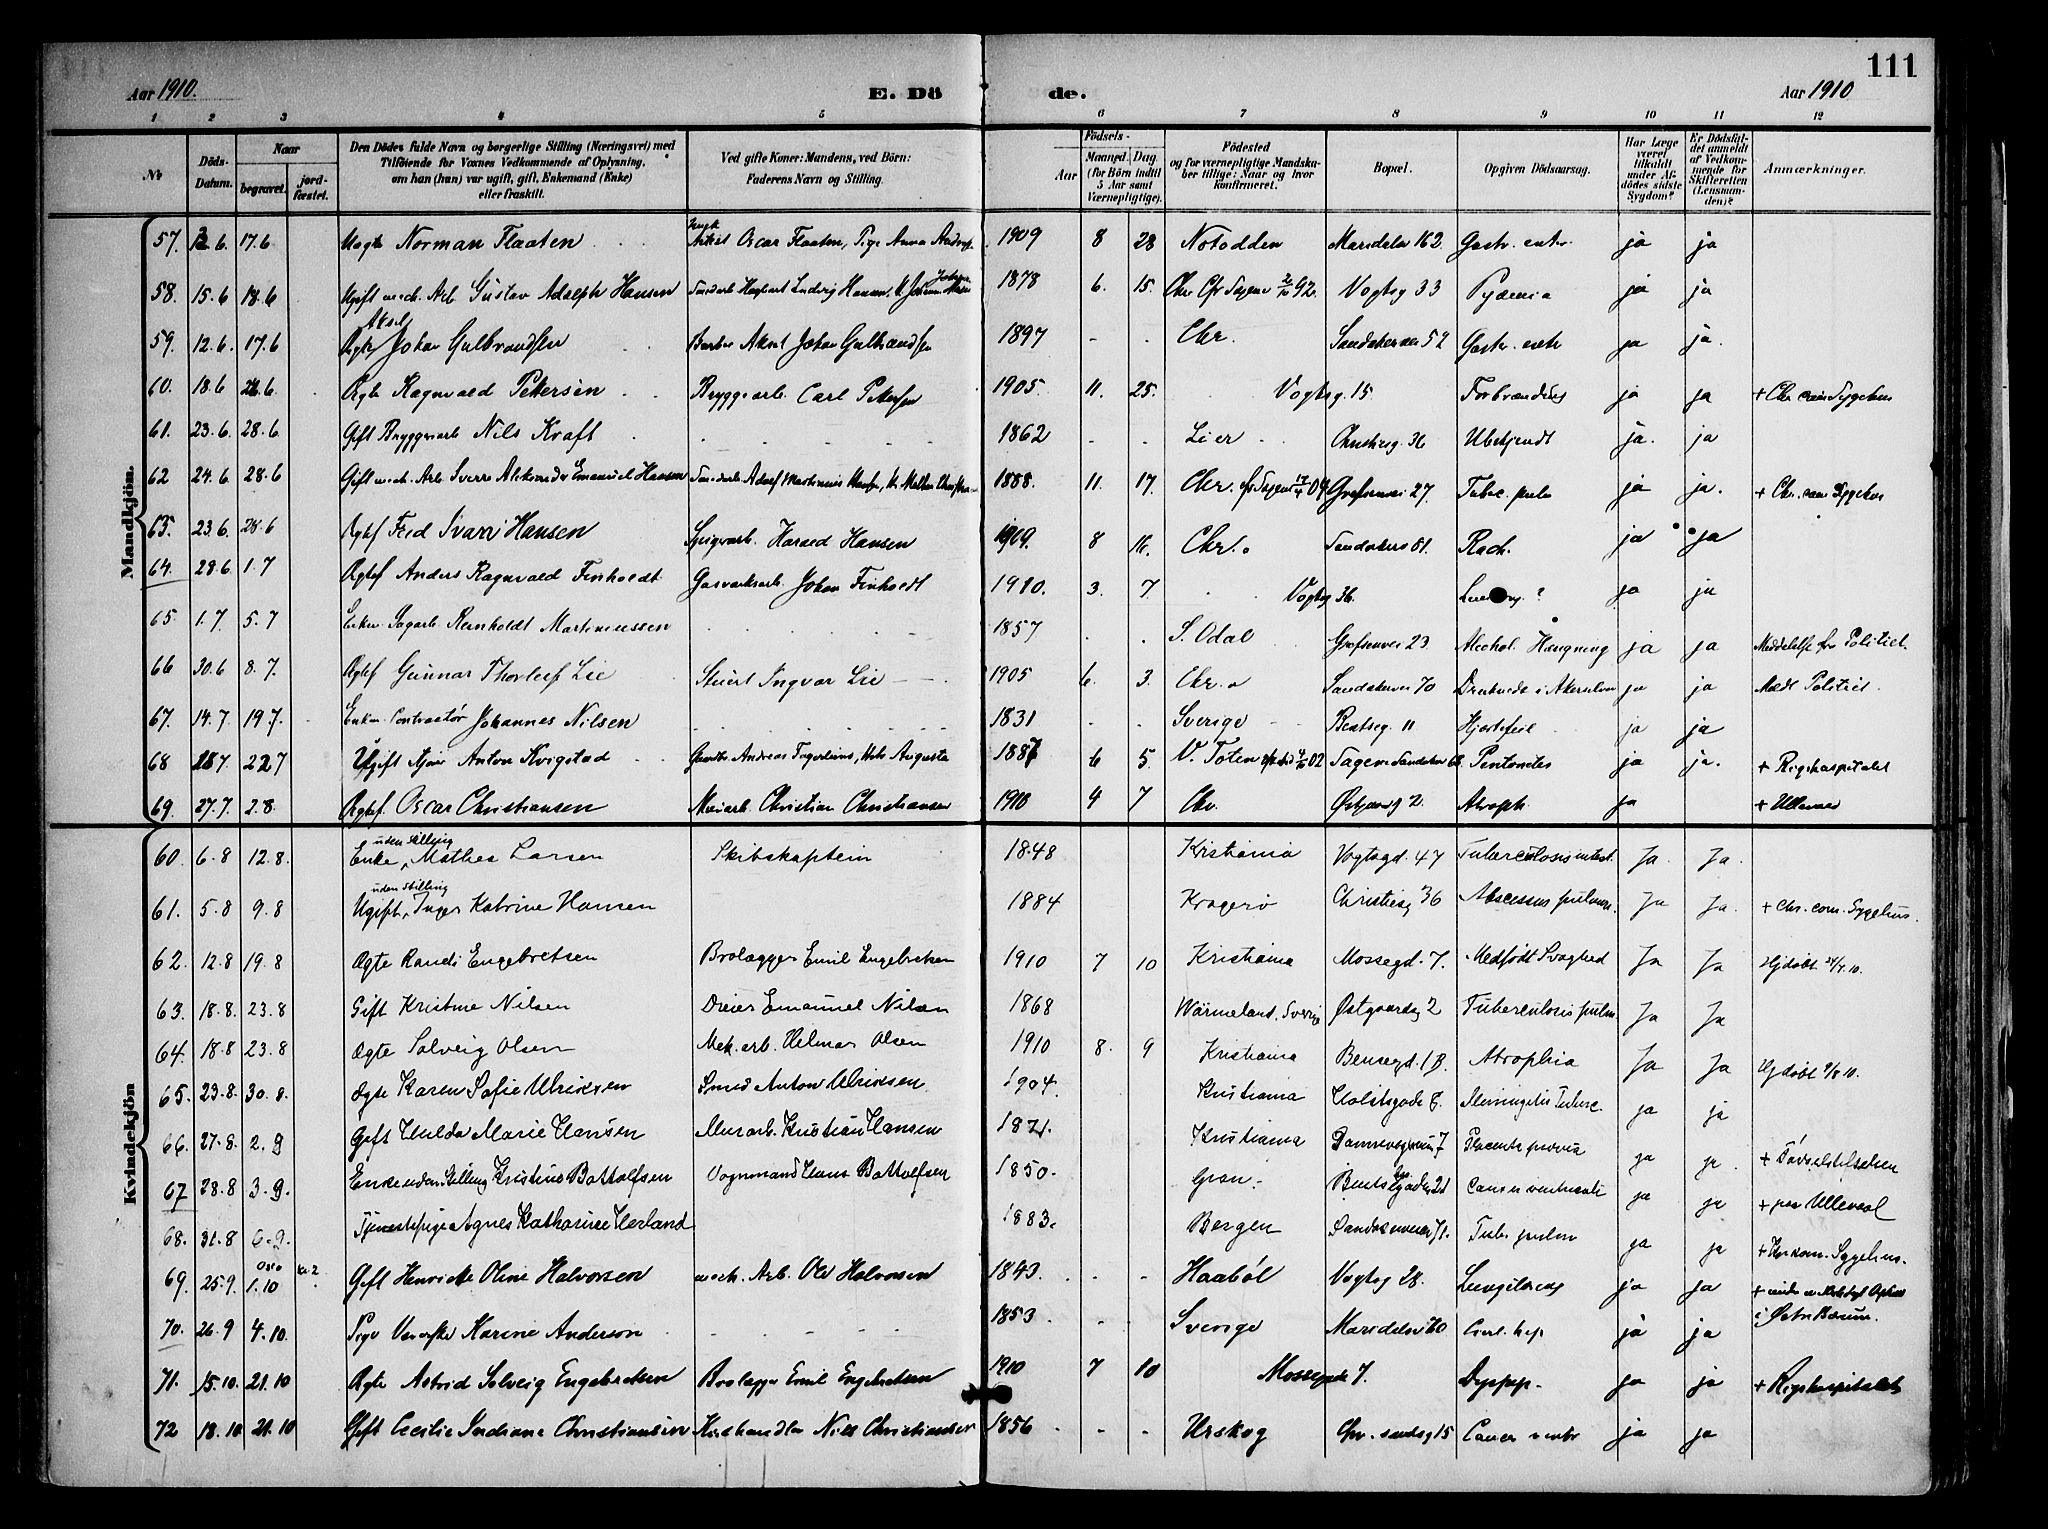 111
Aar 1910. E. Dö de. Aar 1910
1 2 3 4 5 6 7 8 9 10 11 12
No Döds-Datum. Naar begravet. jord-fæstet. Den Dödes fulde Navn og borgerlige Stilling (Næringsvei) med Tilföiende for Voxnes Vedkommende af Oplysning, om han (hun) var ugift, gift, Enkemand (Enke) eller fraskilt. Ved gifte Koner: Mandens, ved Börn: Faderens Navn og Stilling. Födsels- Aar Maaned. Dag. (for Börn indtil 5 Aar samt Værnepligtige). Födested og for værnepligtige Mandskaber tillige: Naar og hvor konfirmeret. Bopæl. Opgiven Dödsaarsag. Har Læge været tilkaldt under Afdödes sidste Sygdom? Er Dödsfaldet anmeldt af Vedkommende for Skifteretten (Lensmanden)? Anmærkninger.
Mandkjön.
57. 12.6. 17.6 Uægte Norman Flaaten Oscar Flaaten, Pige Anna 1909 8 28 Notodden Maridalsv 162 Gastr. enter. ja ja
58. 15.6 18.6 Ugift mech. Arb. Gustav Adolph Hansen Ludvig Hansen 1878 6. 15. Chr 92. Vogtsg 33 Pyæmia ja ja
59. 12.6. 17.6 Ægte Aksel Johan Gulbrandsen Aksel Johan Gulbrandsen 1897 - - Chr. Sandakerveien 52 Gastr. entr ja ja.
60. 18.6 6 Ægte Ragnvald Pettersen Bryggearb. Carl Petersen 1905. 11. 25. Vogtsg. 15. Forbrænding ja ja + Chr com Sygehus
61. 23.6 28.6 Gift Bryggearb Nils Kraft 1862 - - Lier Christiesg. 36 Ubekjendt ja. ja
62 24.6 28.6 Gift mech. Arb Sverre Aleksander Emanuel Hansen Adolf Martinius 1888. 11. 17. Chr. Grefsenvei 27. Tuberc. pulm ja ja. + Chr. com Sygehus
63. 23.6 28.6 Ægtef Fred Ivar Hansen Spigerarb. Harald Hansen 1909. 8 16. Chr. Sandakerv 81. Rach. ja ja
64. 28.6 1.7 Ægtef Anders Ragnvald Finholdt Gasværksarb. Johan Finholdt 1910. 3. 7 Vogtsg 36. ? ja ja
65. 1.7 5.7 Enkem Sagarb. Reinholdt Martiniussen 1857 S. Odal Grefsenvei 23 Alcohol. Hængning ja ja Meddelelse fra Politiet.
66 30.6 8.7. Ægtef Gunnar Thorleif Lie Stuert Ingvar Lie 1905 6. 3. Chr. Sandakervei 70 Druknede i Akerselven ja ja Medd Politiet.
67. 14.7 19.7. Enkem. Contractör Johannes Nilsen 1831 - - Sverige Bentseg. 11 Hjertefeil ja ja
68 7 22 7 Ugift Anton Kvigstad Andreas Augusta 188 6 5. V. Toten 02 Sandaker 68 Peritonitis ja ja. + Rigshospitalet
69. 27.7. 2.8. Ægtef. Oscar Christiansen Murarb. Christian Christiansen 1910 4 7 Chr. 2. Atroph. ja + Ullevaal
Kvindekjön
60. 6.8 12.8. Enke, uden stilling Mathea Larsen Skibskaptein 1848 Kristiania Vogtsgd. 47 Tuberculosis intest. Ja Ja.
61. 5.8 9.8 Ugift, uden stilling Inger Katrine Hansen 1884 Kragerø Christiesg 36 Abscessus pulmon. Ja Ja. + Chr. com. Sygehus.
62. 12.8 19.8 Ægte Randi Engebretsen Brolægger Emil Engebretsen 1910 7 10 Kristiania Mossegd. 7. Medfødt Svaghed Ja Ja Hjdøbt 24/7 10.
63. 18.8. 23.8 Gift Kristine Nilsen Dreier Emanuel Nilsen 1868 Wärmeland. Sverige Østgaardsg 2 Tuberculosis pulm. Ja Ja
64. 18.8 23.8 Ægte Solveig Olsen Mek. arb. Helmar Olsen 1910 8. 9 Kristiania Bensegd. 1 B. Atrophia Ja Ja Hjdøbt 9/8 10.
65. 23.8. 30.8. Ægte Karen Sofie Ulriksen Smed Anton Ulriksen 1904. Kristiania Holstsgade 6. Meningitis Tuberc. ja ja
66. 27.8. 2.9 Gift Hulda Marie Hansen Murarb. Kristian Hansen 1871. Kristiania 7 Placenta prævia ja ja. + Fødselstiftelsen
67 28.8 3.9. Enke uden Stilling Kristine Bottolfsen Vognmand Hans Bottolfsen 1850. Gran. Bentsegaden 21 Cancer ventriculi ja ja + paa Ullevaal
68. 31.8 6.9. Tjenestepige Agnes Katharine Herland 1883. Bergen Sandakerveien 71. Tub. pulm ja ja + Kr. kom. Sygehus.
69. 25.9. Oslo 1.10 kl. 2 Gift Henrikke Oline Halvorsen mech. Arb. Ole Halvorsen 1843. - - Haaböl Vogtsg 28. ja ja +
70. 26.9 4.10. Pige Karine Anderson 1853 - . Sverige Maridalsv ja ja i Østre Bærum.
71. 15.10. 21.10 Ægte Astrid Solveig Engebretsen Brolægger Emil Engebretsen 1910 7 10 Mossegade 7. ja ja + Rigshospitalet
72 18.10 21.10 Gift Cecilie Indiana Christiansen Nils Christiansen 1856 - - Urskog 15 Cancer ventr ja ja